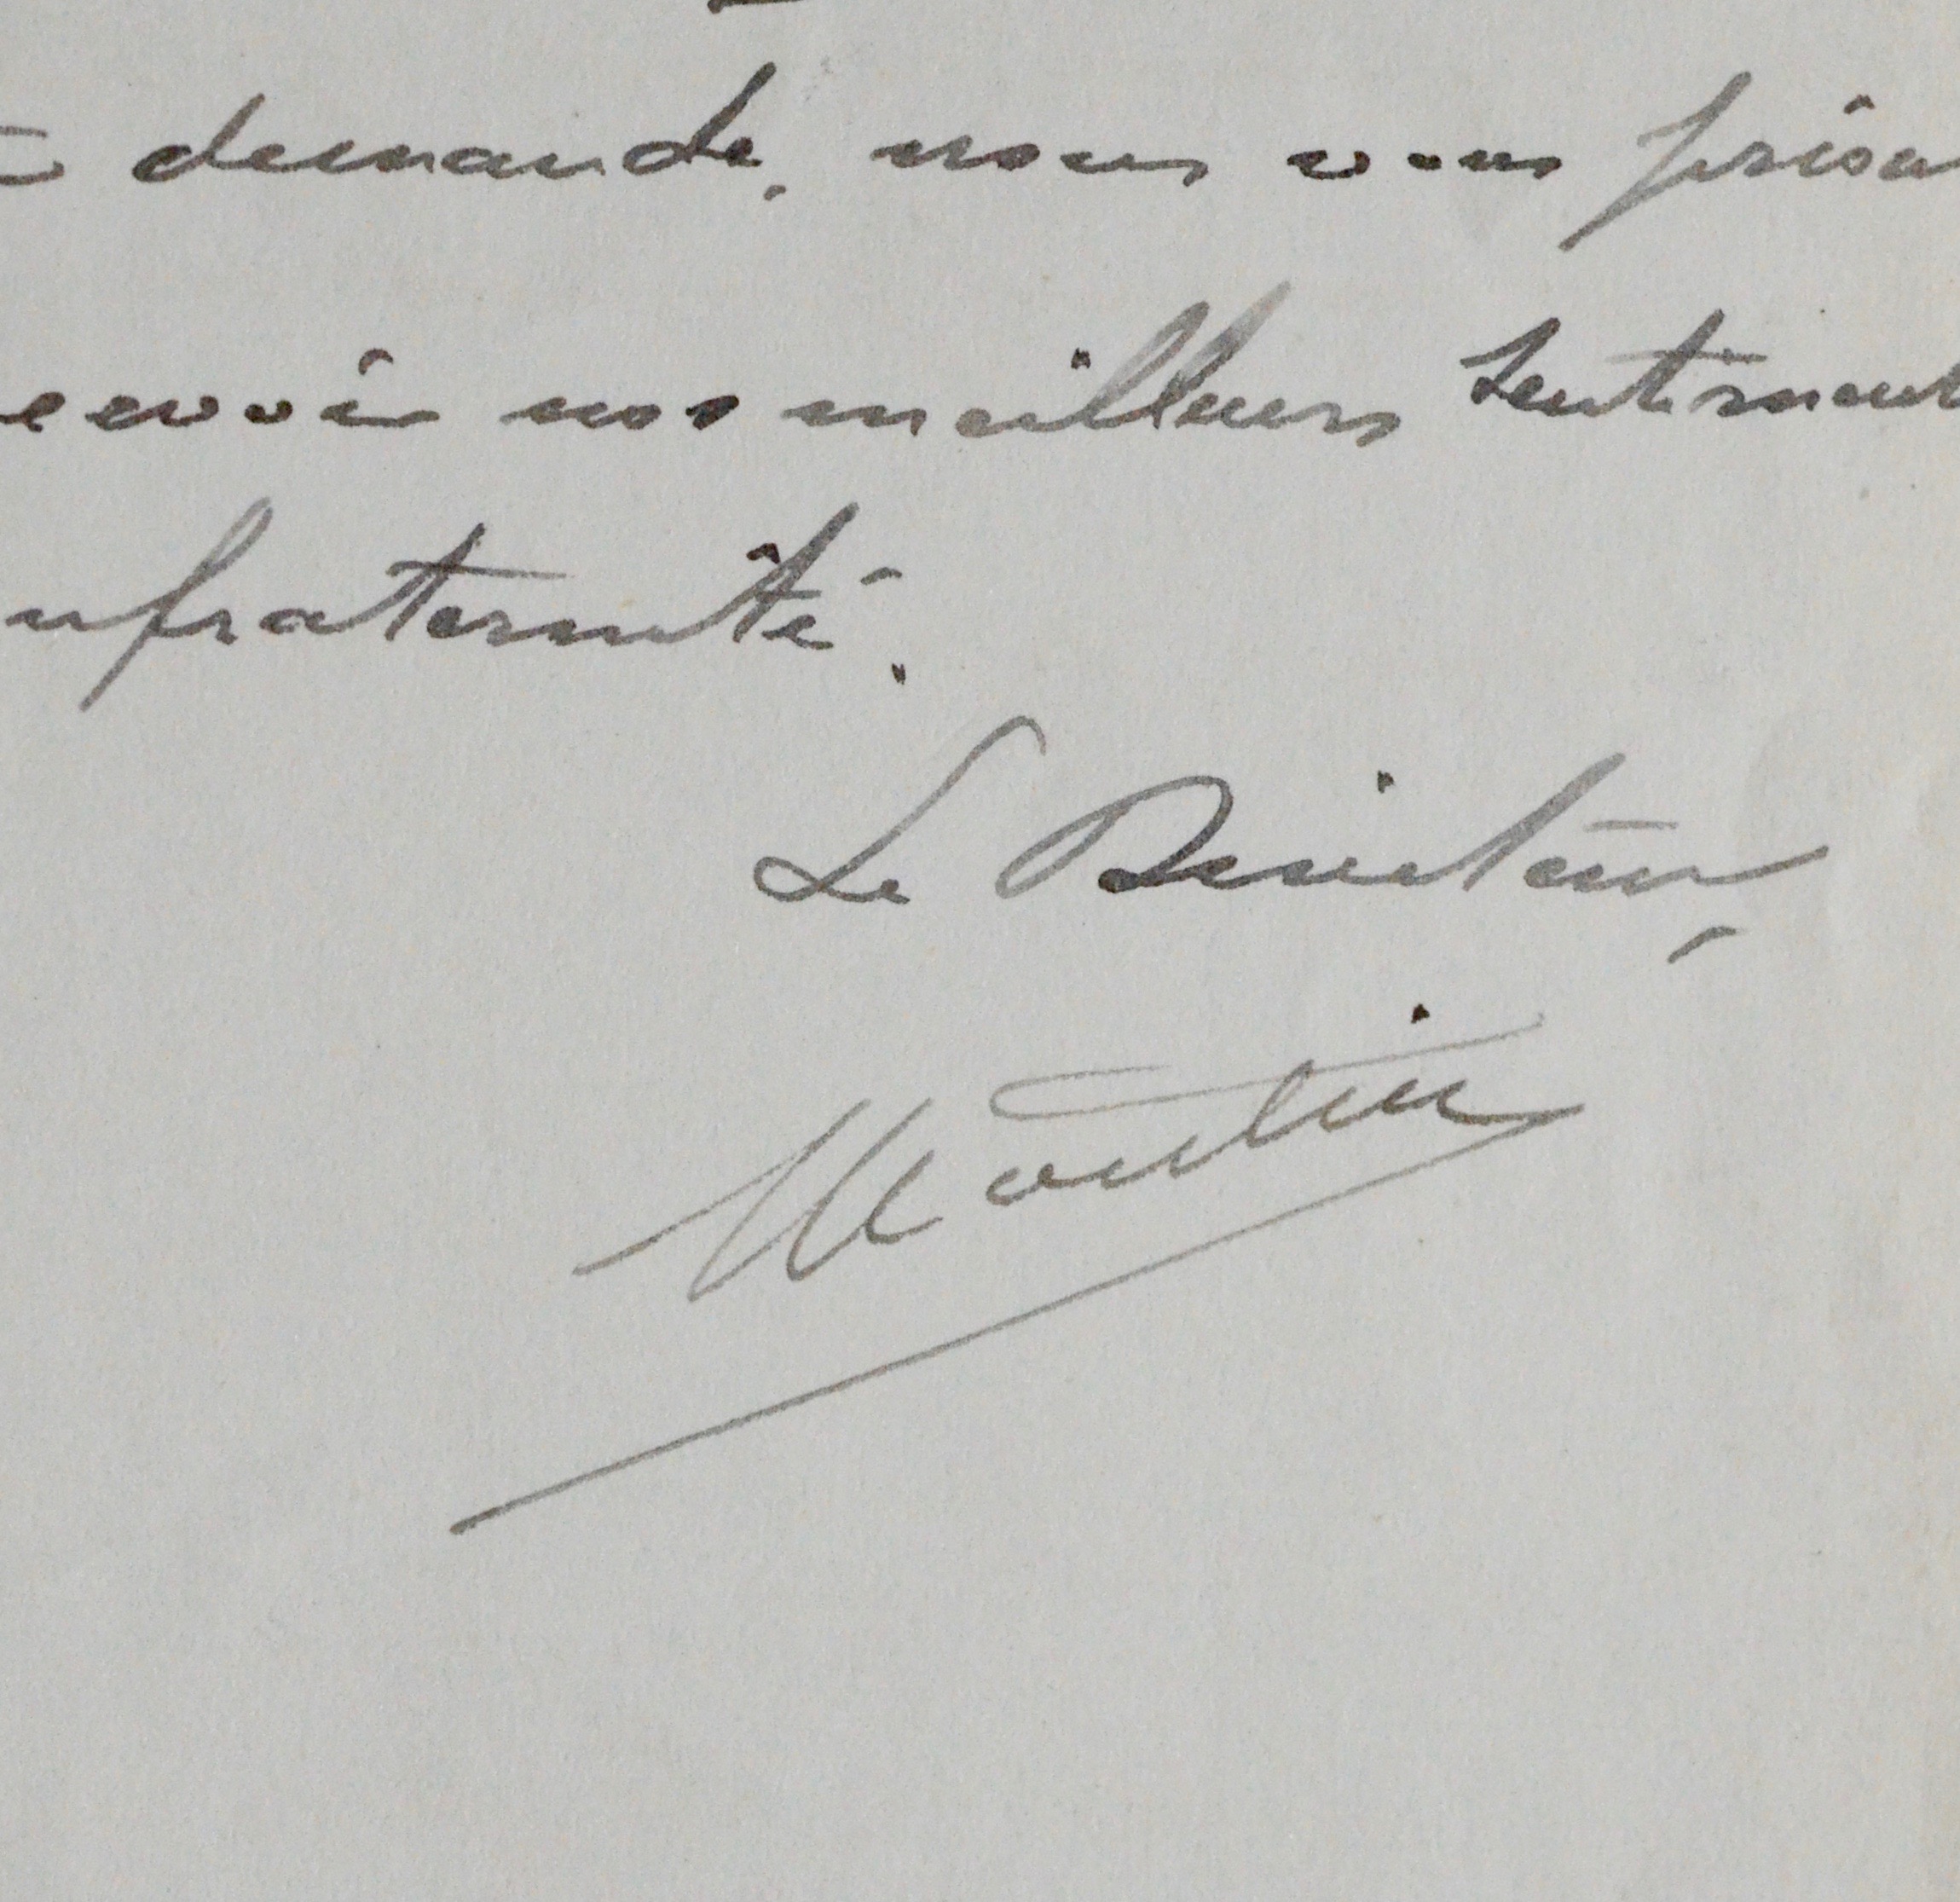 demande, nous vous prion
ecevoir nos meilleurs sentiment
nfraternité.
Le Directeur,